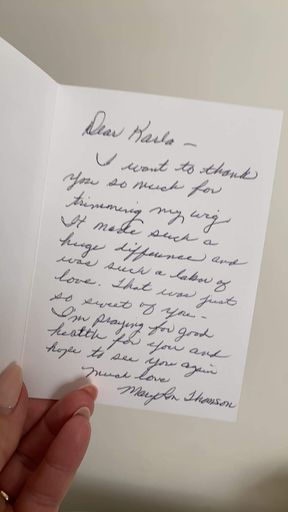 Dear Karla -
I want to thank
you so much for
trimming my wig
It made such a
huge difference and
was such a labor of
love. That was just
so sweet of you -
I'm praying for good
health for you and
hope to see you again
much love